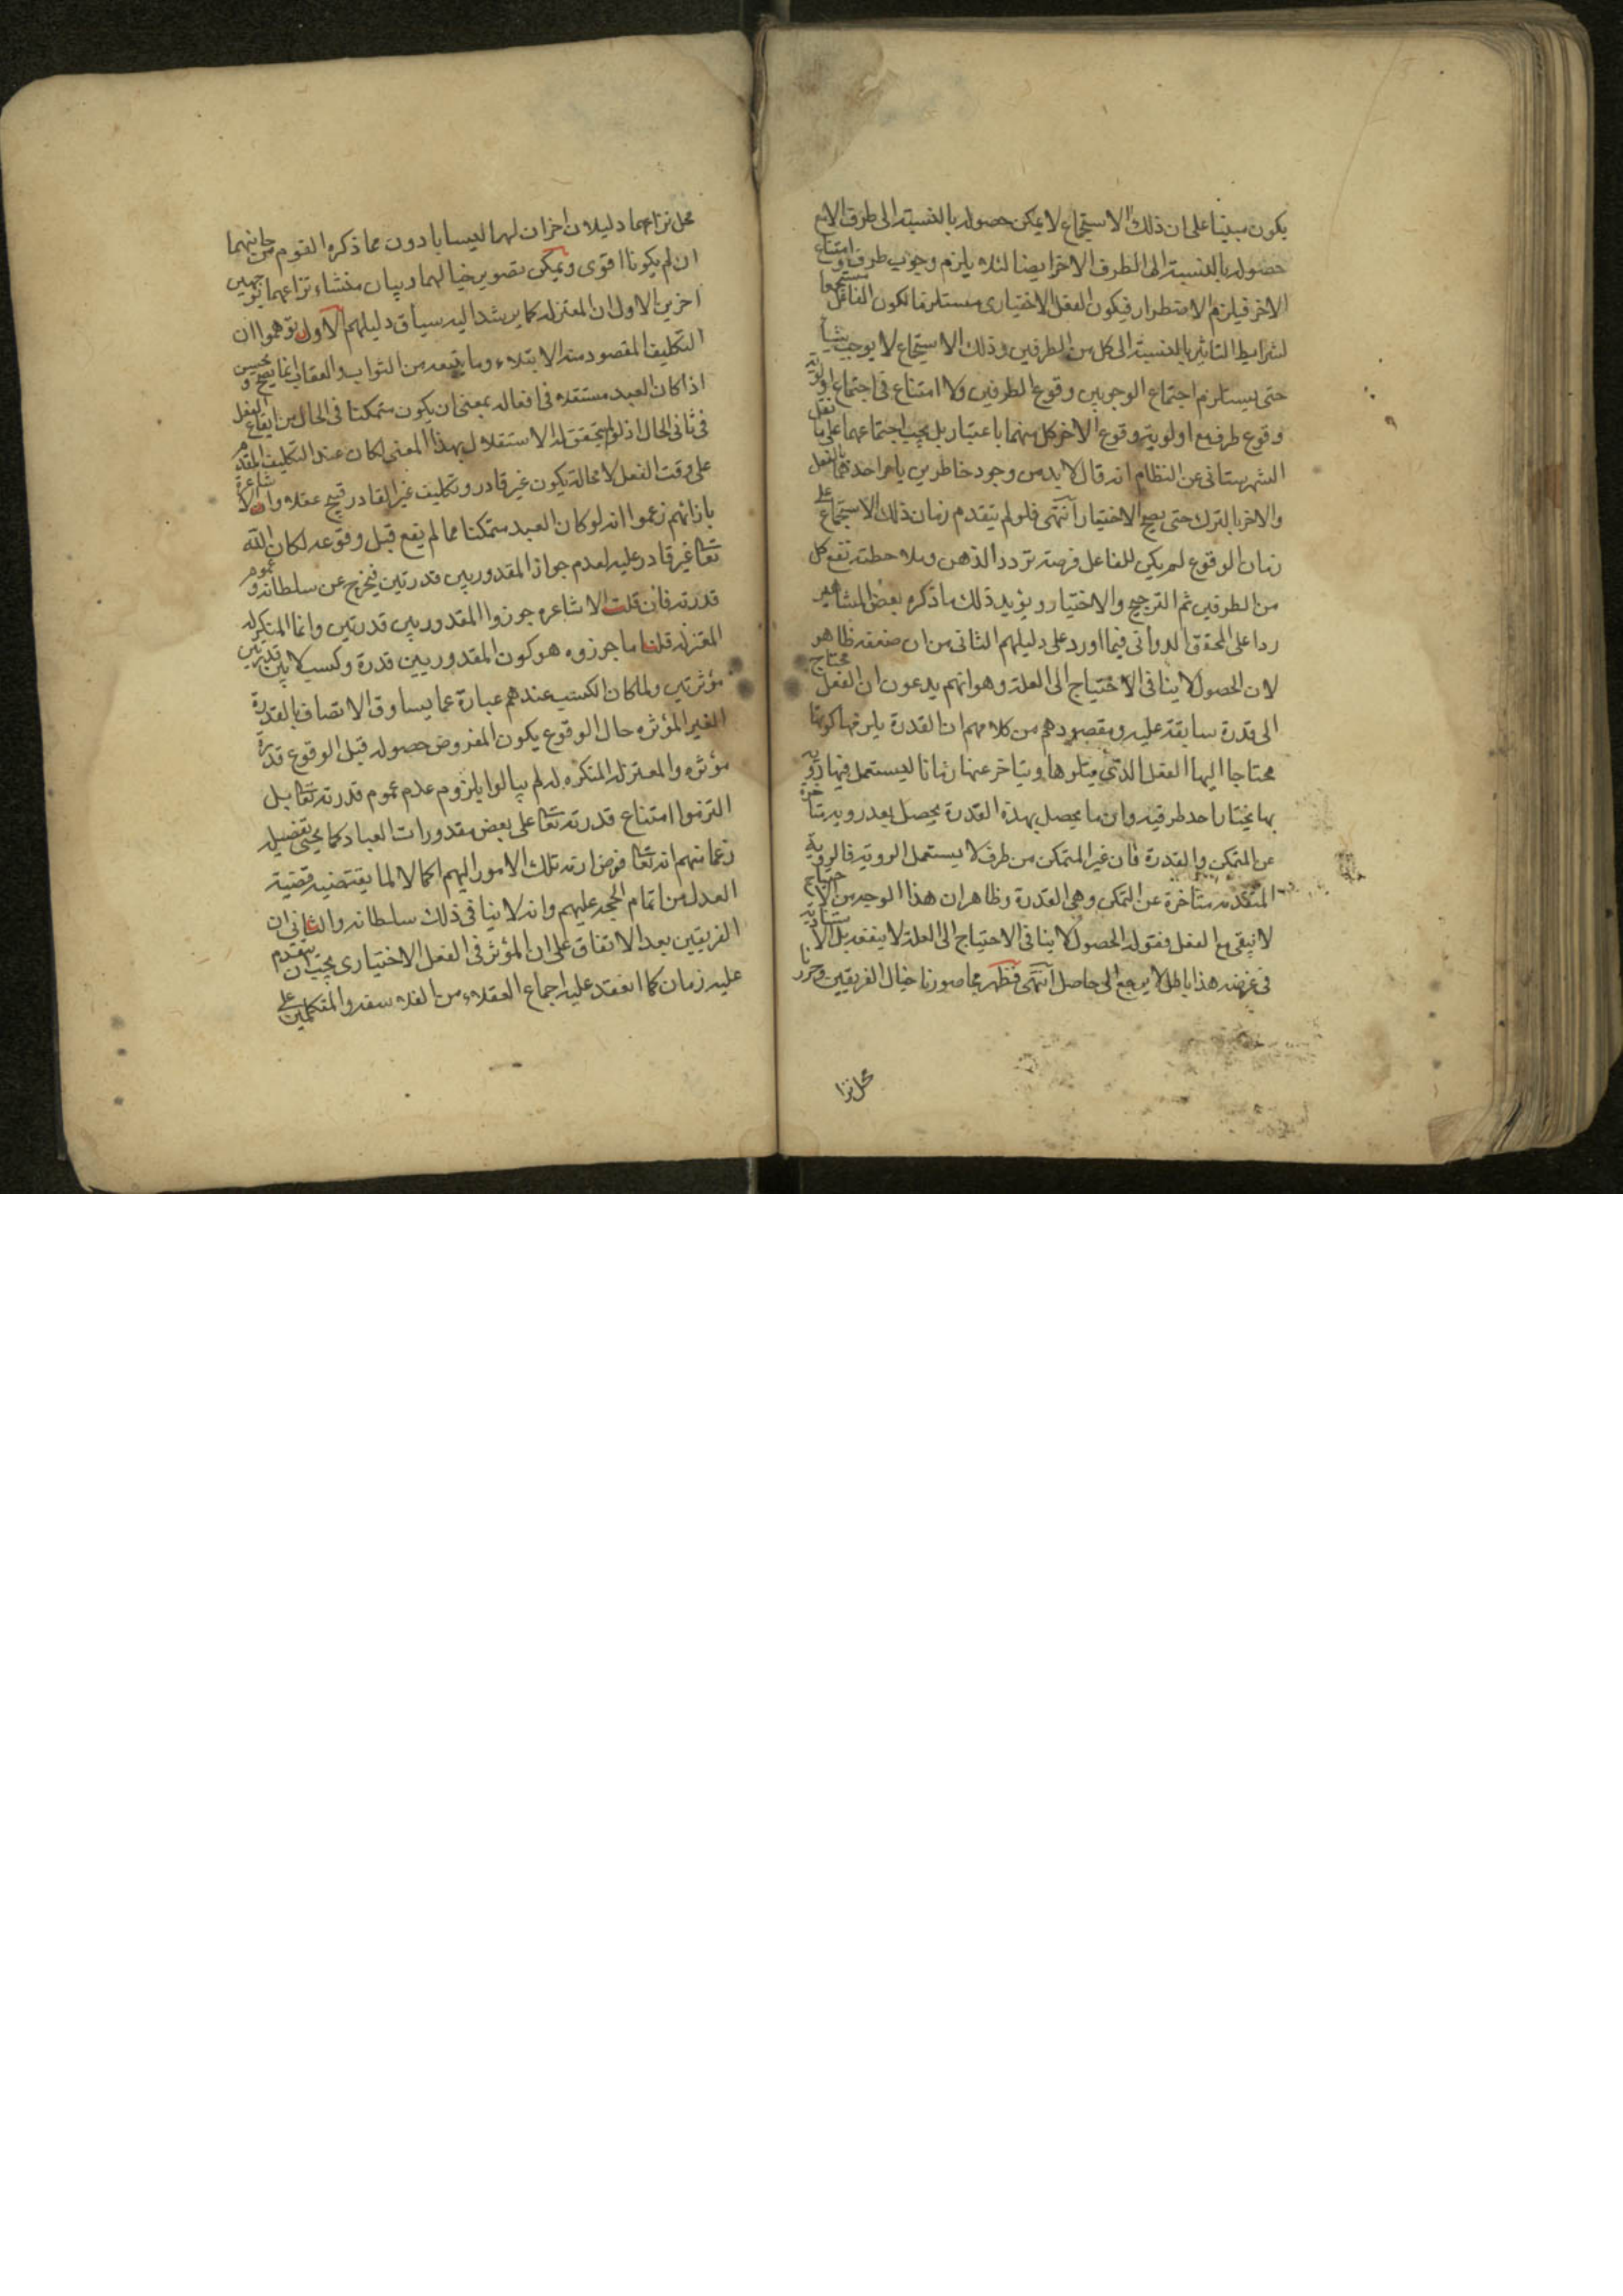 يكون مبنيا على ان ذلك الاستجماع لا يمكن حصوله بالنسبة الى طرف الا مع
حصوله بالنسبة الى الطرف الاخر ايضا لئلا يلزم وجوب طرف وامتناع
الاخر فيلزم الاضطرار فيكون الفعل الاختيارى مستلزما لكون الفاعل مستجمعا
لشرايط التاثير بالنسبة الى كل من الطرفين وذلك الاستجماع لا يوجب شيئا
حتى يستلزم اجتماع الوجوبين وقوع الطرفين ولا امتناع فى اجتماع اولوية
وقوع طرف مع اولوية وقوع الاخر كل منهما باعتبار بل يجب اجتماعهما على ما نقل
الشهرستانى عن النظام انه قال لا بد من وجود خاطرين يامر احدهما بالفعل
والاخر بالترك حتى يصح الاختيار انتهى فلو لم يتقدم زمان ذلك الاستجماع على
زمان الوقوع لم يكن للفاعل فرصة تردد الذهن وملاحظته نفع كل
من الطرفين ثم الترجيح والاختيار ويؤيد ذلك ما ذكره بعض المشاهير
ردا على المحقق الدوانى فيما اورد على دليلهم الثانى من ان ضعفه ظاهر
لان الحصول لا ينافى الاحتياج الى العلة وهو انهم يدعون ان الفعل محتاج
الى قدرة سابقة عليه ومقصودهم من كلامهم ان القدرة يلزمها كونها
محتاجا اليها الفعل الذى يتلوها ويتاخر عنها زمانا ليستعمل فيها روية
بها يختار احد طرفيه وان ما يحصل بهذه القدرة يحصل بعد روية متاخرة
عن التمكن والقدرة فان غير المتمكن من طرف لا يستعمل الروية فالروية
المتقدمة متاخرة عن التمكن وهى القدرة وظاهر ان هذا الوجه من الاحتياج
لا تبقى مع الفعل فقوله الحصول لا ينافى الاحتياج الى العلة لا ينفعه بل الاستنادية
فى غرضه هذا باطل لا يرجع الى حاصل انتهى فظهر مما صورنا خيال الفريقين وحررنا
محل نزا
محل نزاعهما دليلان اخران لهما ليسا بادون مما ذكره القوم من جانبهما
ان لم يكونا اقوى ويمكن تصوير خيالهما وبيان منشاء نزاعهما بوجهين
اخرين الاول ان المعتزلة كما يرشد اليه سياق دليلهم الاول توهموا ان
التكليف المقصود منه الابتلاء وما يتبعه من الثواب والعقاب انما يصح ويحسن
اذا كان العبد مستقلا فى افعاله بمعنى ان يكون متمكنا فى الحال من ايقاع الفعل
فى ثانى الحال اذ لو لم يتحقق له الاستقلال بهذا المعنى لكان عند التكليف المقدم
على وقت الفعل لا محالة يكون غير قادر وتكليف غير القادر قبيح عقلا وان الاشاعرة
بازائهم زعموا انه لو كان العبد متمكنا مما لم يقع قبل وقوعه لكان الله
تعالى غير قادر عليه لعدم جواز المقدور بين قدرتين فيخرج عن سلطانه وعموم
قدرته فان قلت الاشاعره جوزوا المقدور بين قدرتين وانما المنكر له
المعتزلة قلنا ما جوزوه هو كون المقدور بين قدرة وكسب لا بين قدرتين
مؤثرتين ولما كان الكسب عندهم عبارة عما يساوق الاتصاف بالقدرة
الغير المؤثره حال الوقوع يكون المفروض حصوله قبل الوقوع قدرة
مؤثره والمعتزلة المنكره له لم يبالوا بلزوم عدم عموم قدرته تعالى بل
التزموا امتناع قدرته تعالى على بعض مقدورات العباد كما يجئ تفصيله
زعما منهم انه تعالى فوض ازمة تلك الامور اليهم اكمالا لما يقتضيه قضية
العدل من اتمام الحجة عليهم وانه لا ينافى ذلك سلطانه والثانى ان
الفريقين بعد الاتفاق على ان المؤثر فى الفعل الاختيارى يجب ان يتقدم
عليه زمان كما انعقد عليه اجماع العقلاء من الفلاسفه والمتكلمين على